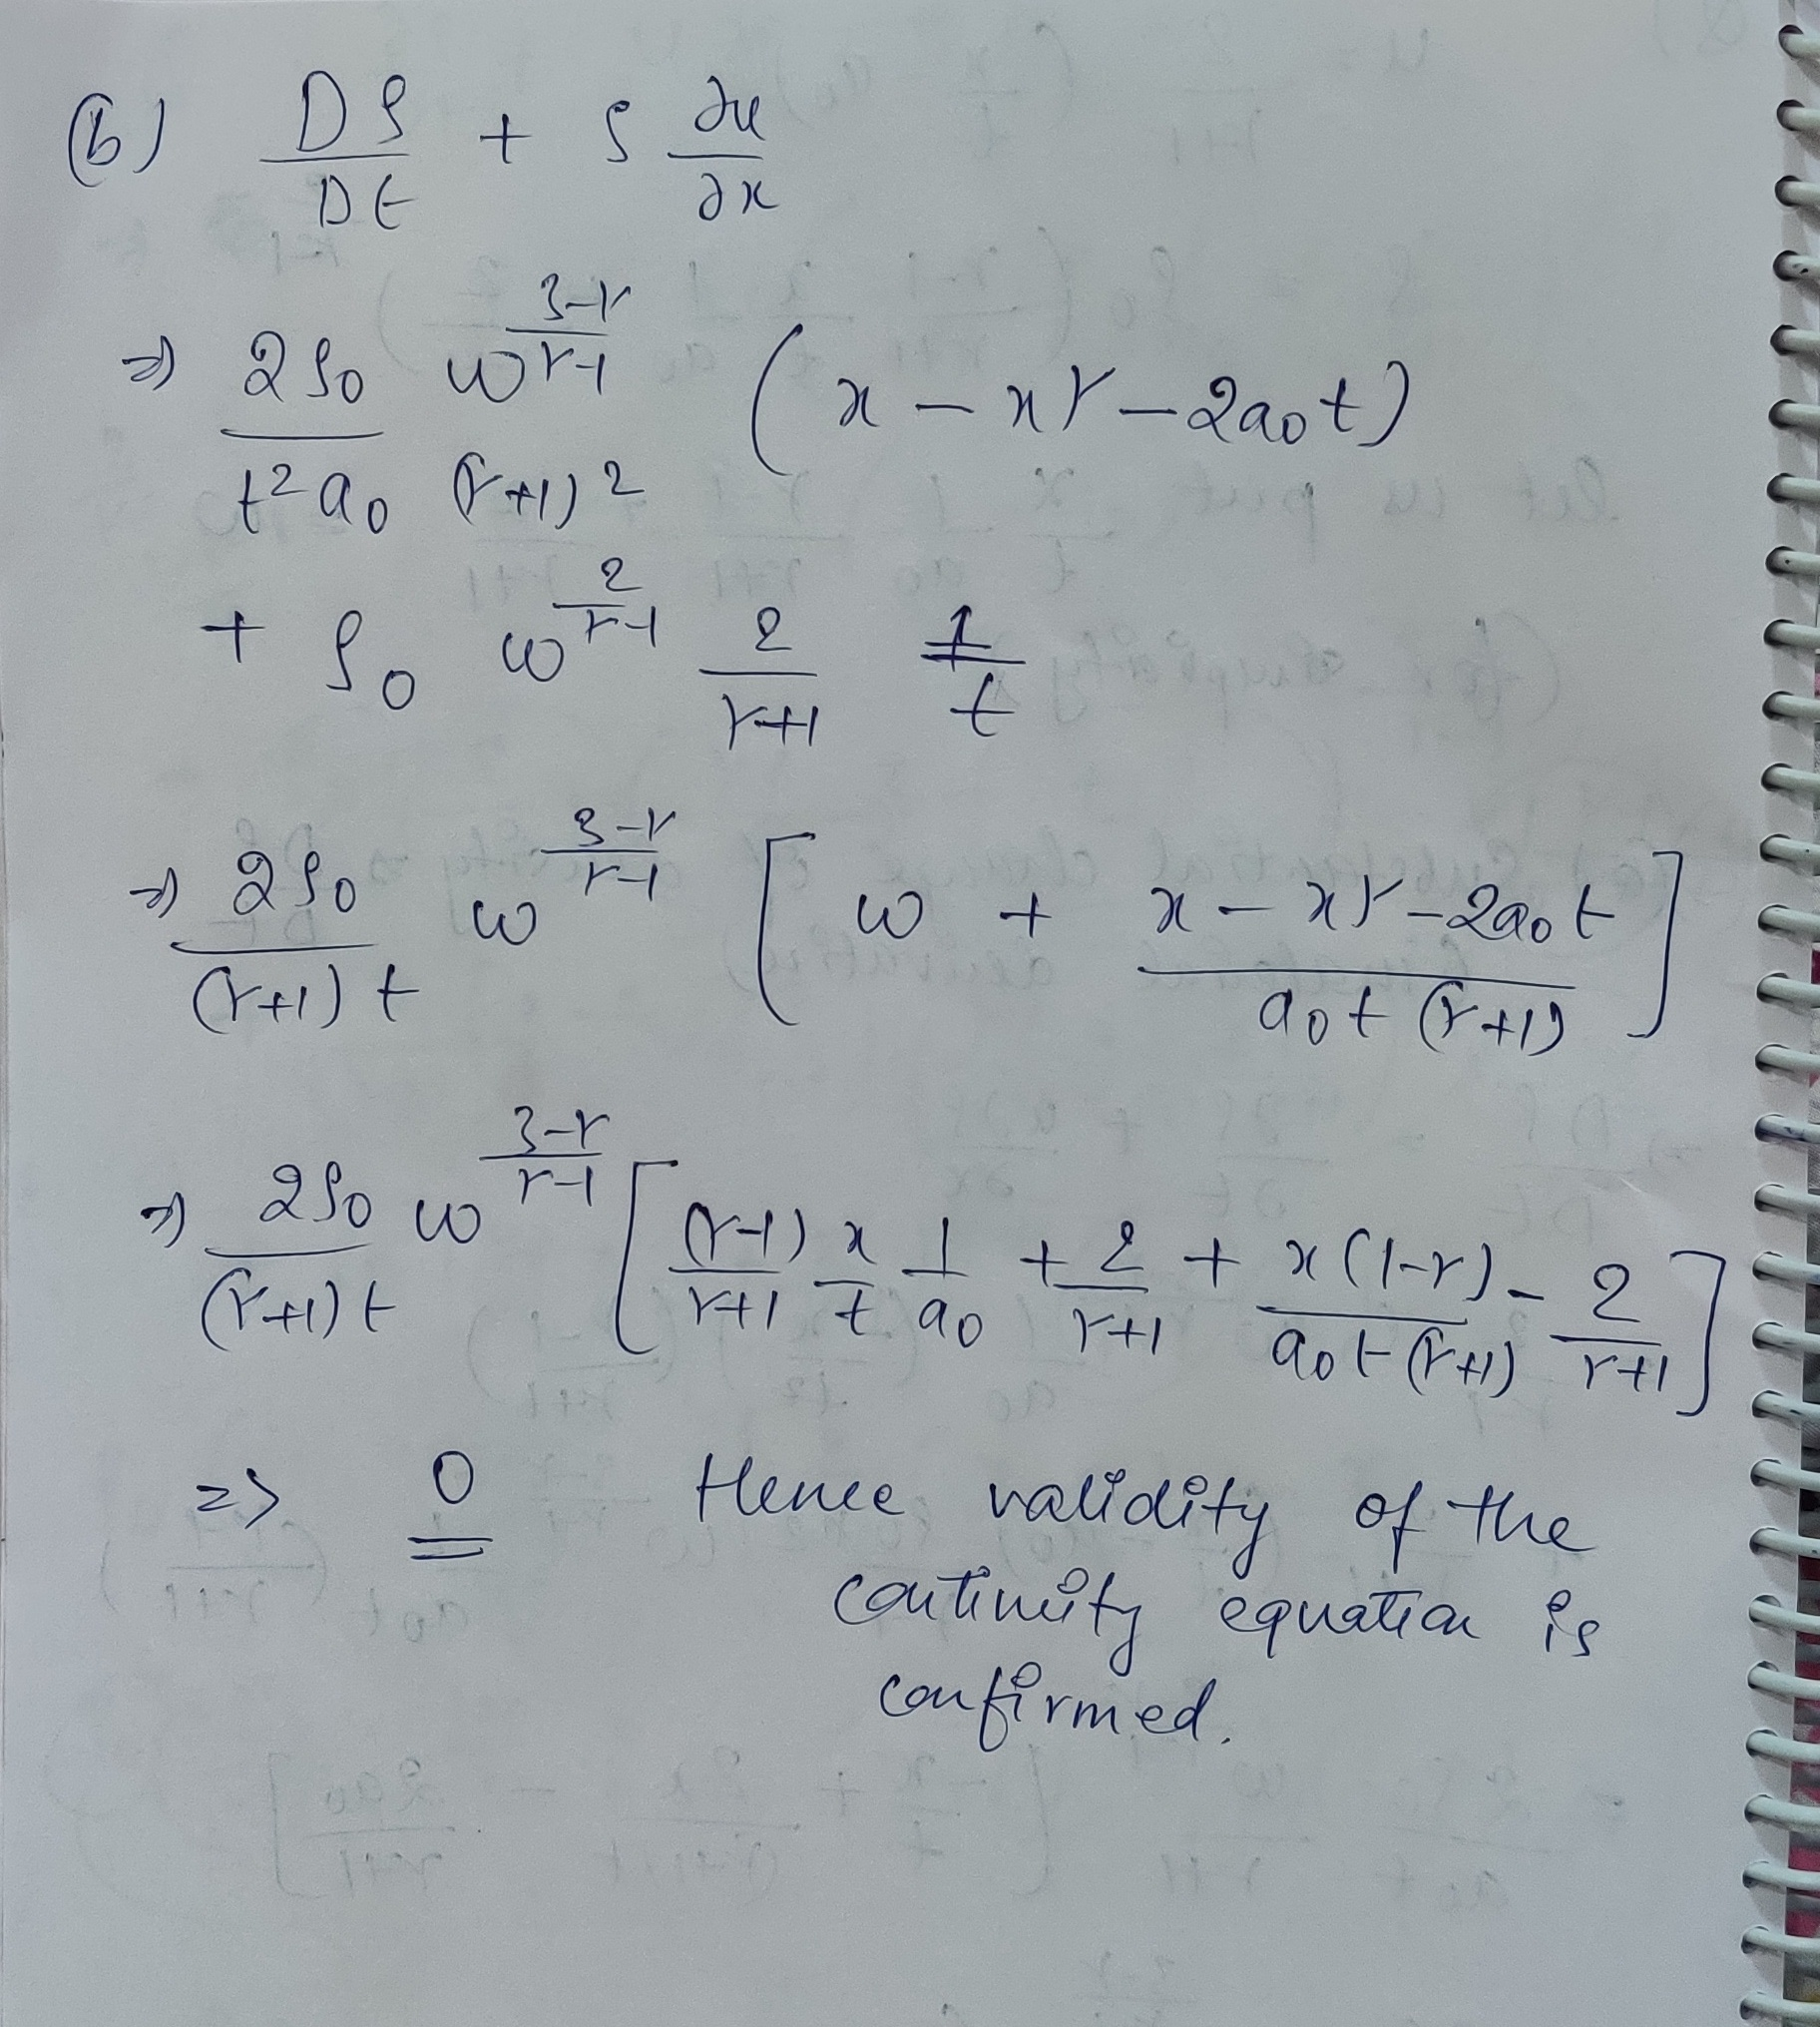 (b) Dρ/Dt + ρ ∂u/∂x
⇒ 2ρ₀/(t²a₀) ω^((3-γ)/(γ-1)) /(γ+1)² (x - xγ - 2a₀t)
+ ρ₀ ω^(2/(γ-1)) 2/(γ+1) 1/t
⇒ 2ρ₀/((γ+1)t) ω^((3-γ)/(γ-1)) [ω + (x - xγ - 2a₀t)/(a₀t(γ+1))]
⇒ 2ρ₀/((γ+1)t) ω^((3-γ)/(γ-1)) [(γ-1)/(γ+1) x/t 1/a₀ + 2/(γ+1) + x(1-γ)/(a₀t(γ+1)) - 2/(γ+1)]
=> 0 Hence validity of the
continuity equation is
confirmed.